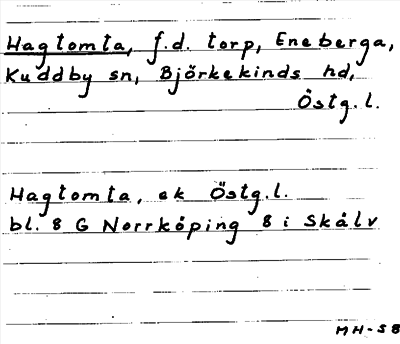 Hagtomta, f.d. torp, Eneberga,
Kuddby sn, Björkekinds hd,
Östg.l.
Hagtomta, ek Östg.l.
bl. 8 G Norrköping 8 i Skålv
MH-58